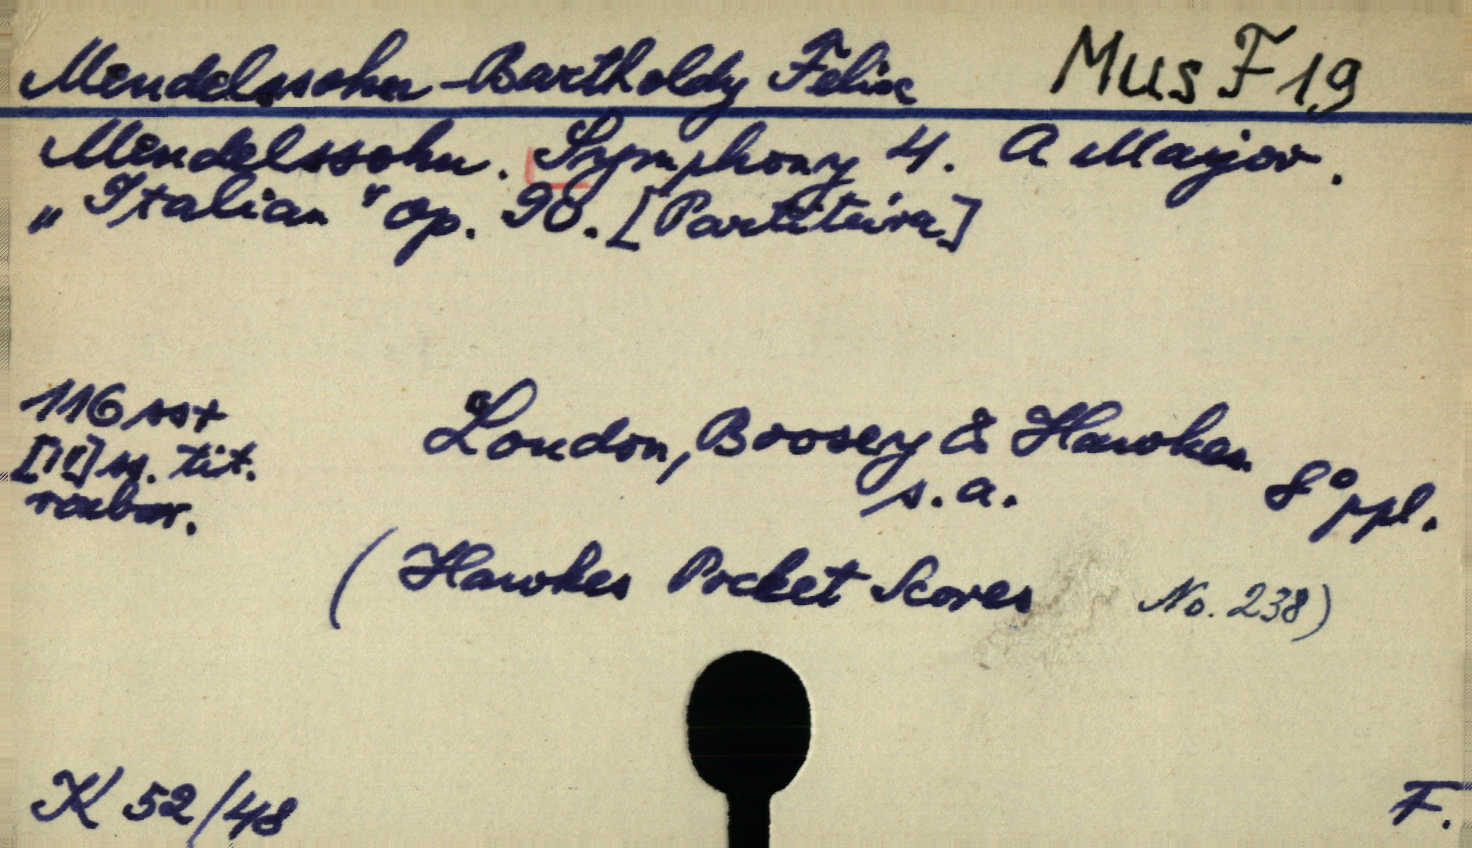 Mendelssohn-Bartholdy Felix Mus F 19
Mendelssohn. Symphony 4. A Major.
„Italian" op. 90. [Partitúra]
116 ss+
London, Boosey & Hawkes
s. a. 8° ppl.
tit.
(Hawkes Pocket Scores No. 238)
K 52/48 F.